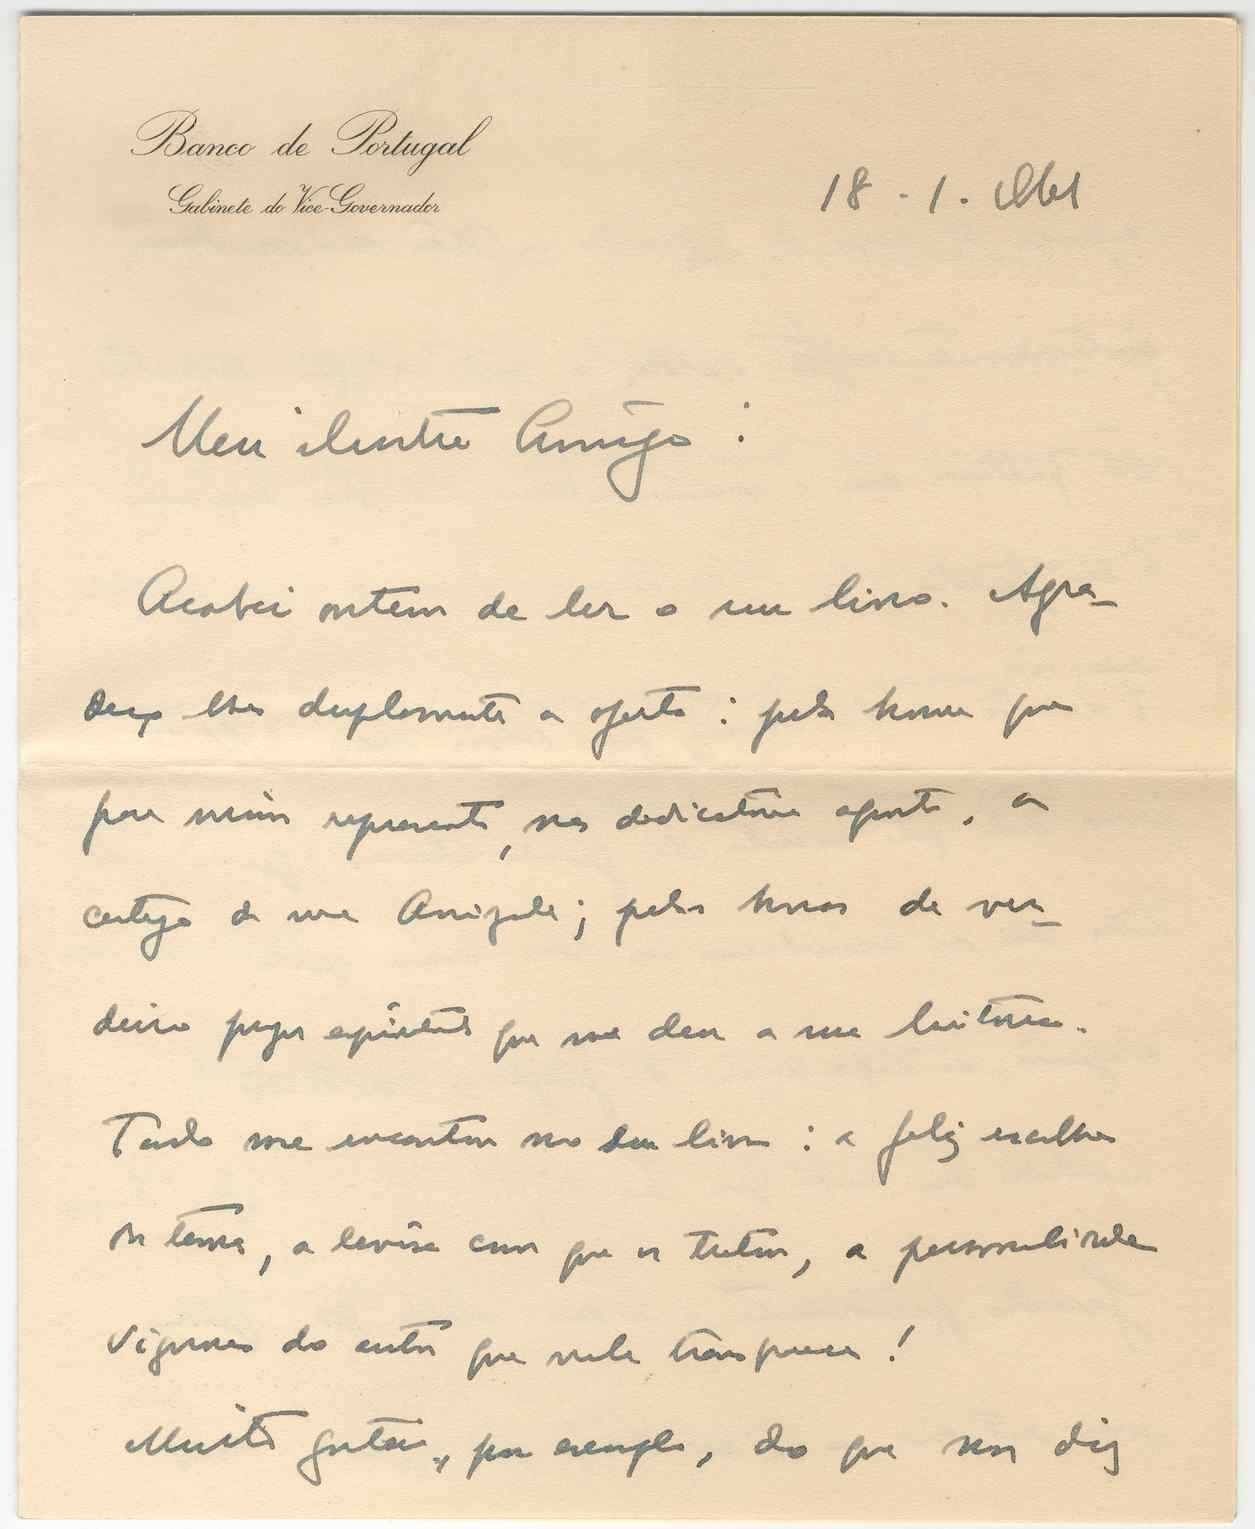 Banco de Portugal
Gabinete do Vice-Governador
18 - 1.
Meu ilustre Amigo :
Acabei ontem de ler o seu livro. Agra-
deço-lhe duplamente a oferta : pela honra que
para mim representa, na dedicatória aposta, a
certeza da sua Amizade; pelas horas de ver-
deiro prazer espiritual que me deu a sua leitura.
Tudo me encantou no seu livro : a feliz escolha
do tema, a leveza com que o tratou, a personalidade
vigorosa do autor que nele transparece !
Muito gostei, por exemplo, do que nos diz